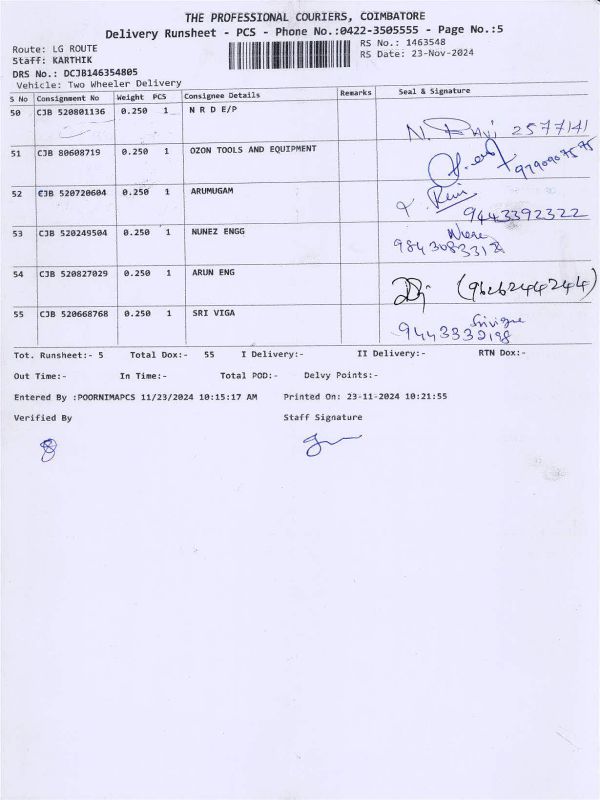 THE PROFESSIONAL COURIERS, COIMBATORE
Delivery Runsheet - PCS - Phone No.:0422-3505555 - Page No.:5
Route: LG ROUTE
RS No.: 1463548
Staff: KARTHIK
RS Date: 23-Nov-2024
DRS No.: DCJB146354805
Vehicle: Two Wheeler Delivery
S No Consignment No Weight PCS Consignee Details Remarks Seal & Signature
50 CJB 520801136 0.250 1 N R D E/P
N. Ravi 2577141
51 CJB 80608719 0.250 1 OZON TOOLS AND EQUIPMENT
9790907575
52 CJB 520720604 0.250 1 ARUMUGAM
9443392322
53 CJB 520249504 0.250 1 NUNEZ ENGG
54 CJB 520827029 0.250 1 ARUN ENG
(9626244244)
55 CJB 520668768 0.250 1 SRI VIGA
Tot. Runsheet:- 5 Total Dox:- 55 I Delivery:- II Delivery:- RTN Dox:-
Out Time:- In Time:- Total POD:- Delvy Points:-
Entered By :POORNIMAPCS 11/23/2024 10:15:17 AM Printed On: 23-11-2024 10:21:55
Verified By Staff Signature